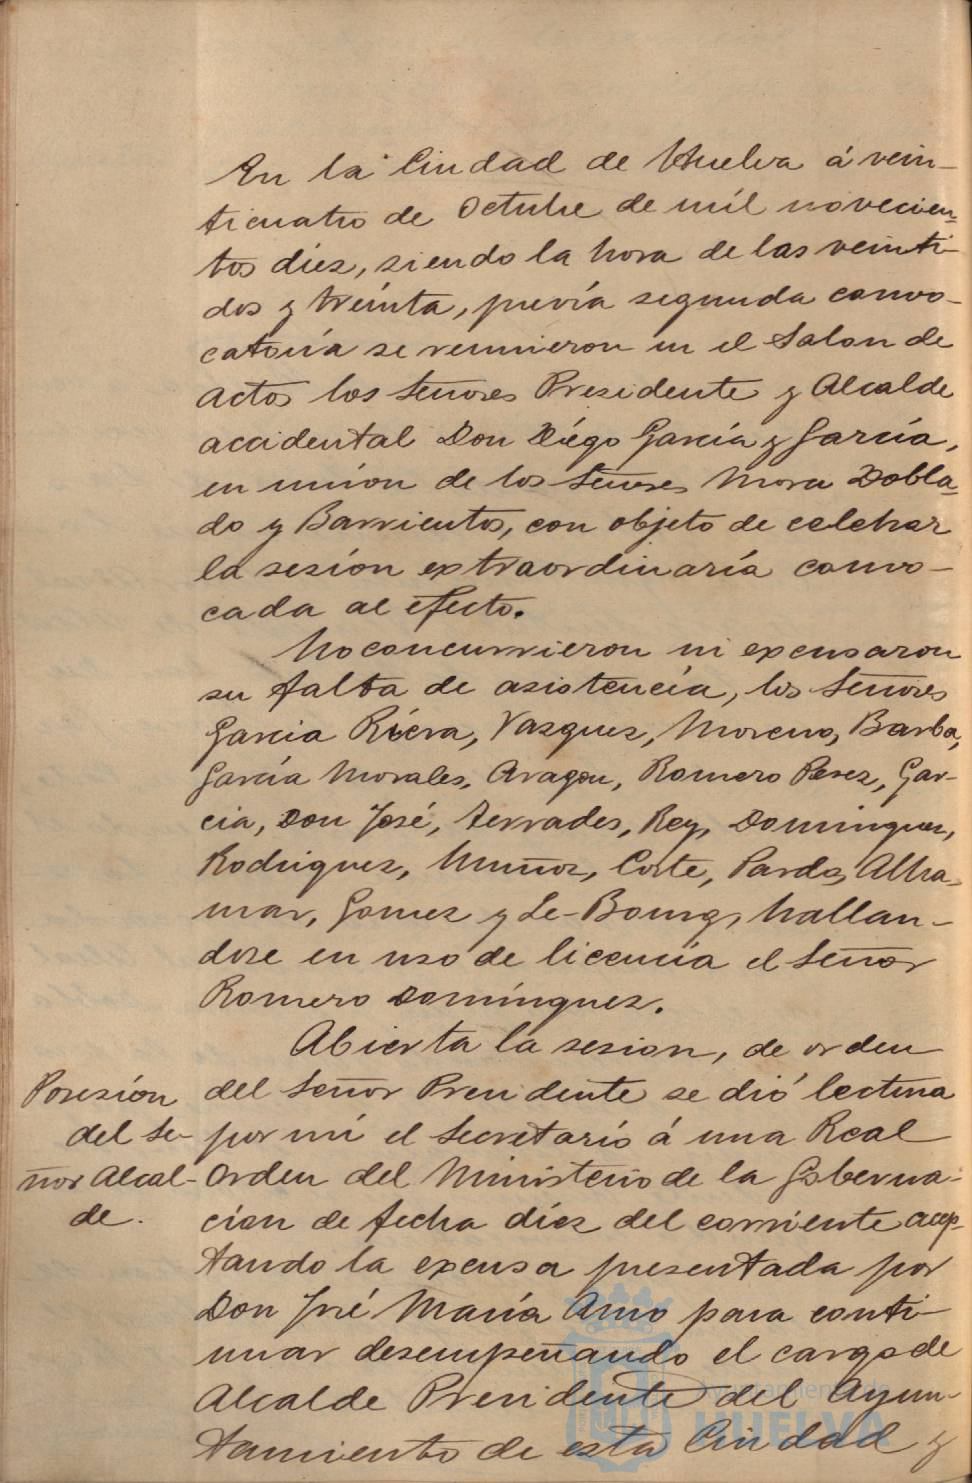 En la Ciudad de Huelva á vein-
ticuatro de Octubre de mil novecien-
tos diez, siendo la hora de las veinti-
dos y treinta, previa segunda convo-
catoria se reunieron en el Salon de
actos los Señores Presidente y Alcalde
accidental Don Diégo García y García,
en unión de los Señores Mora Dobla-
do y Barrientos, con objeto de celebrar
la sesión extraordinaría convo-
cada al efecto.
No concurrieron ni excusaron
su falta de asistencia, los Señores
Garcia Riera, Vazquez, Moreno, Barba,
García Morales, Aragon, Romero Perez, Gar-
cia, Don José, Terrades, Rey, Dominguez,
Rodriguez, Muñoz, Corte, Pardo, Alba-
mar, Gomez y Le-Bourg, hallan-
dose en uso de licencia el Señor
Romero Domínguez.
Abierta la sesion, de orden
del Señor Presidente se dió lectura
por mi el Secretario á una Real
Orden del Ministerio de la Goberna-
cion de fecha diez del corriente acep-
tando la excusa presentada por
Don José María Amo para conti-
nuar desempeñando el cargo de
Alcalde Presidente del Ayun-
tamiento de esta Ciudad y
Posesión
del Se-
ñor Alcal-
de.
Ayuntamiento de
HUELVA